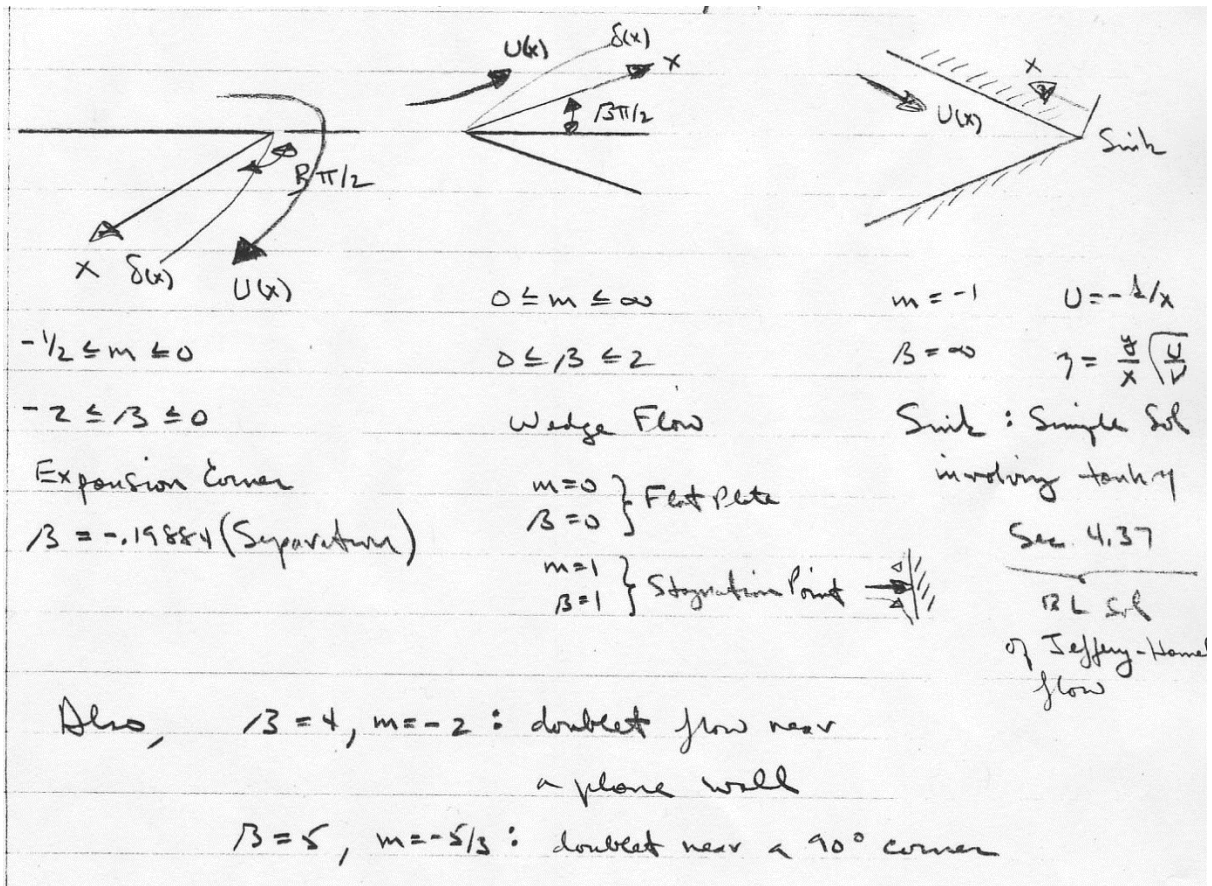 U(x)
δ(x)
x
βπ/2
x
U(x)
Sink
βπ/2
x δ(x) U(x)
-1/2 ≤ m ≤ 0
-2 ≤ β ≤ 0
Expansion Corner
β = -.19884 (Separation)
0 ≤ m ≤ ∞
0 ≤ β ≤ 2
Wedge Flow
m=0
β=0 } Flat Plate
m=1
β=1 } Stagnation Point
m = -1 U = -1/x
β = ∞ η = y/x √U/ν
Sink : Simple Sol
involving tanh η
Sec 4.37
BL Sol
of Jeffery-Hamel
flow
Also, β = 4, m = -2 : doublet flow near
a plane wall
β = 5, m = -5/3 : doublet near a 90° corner